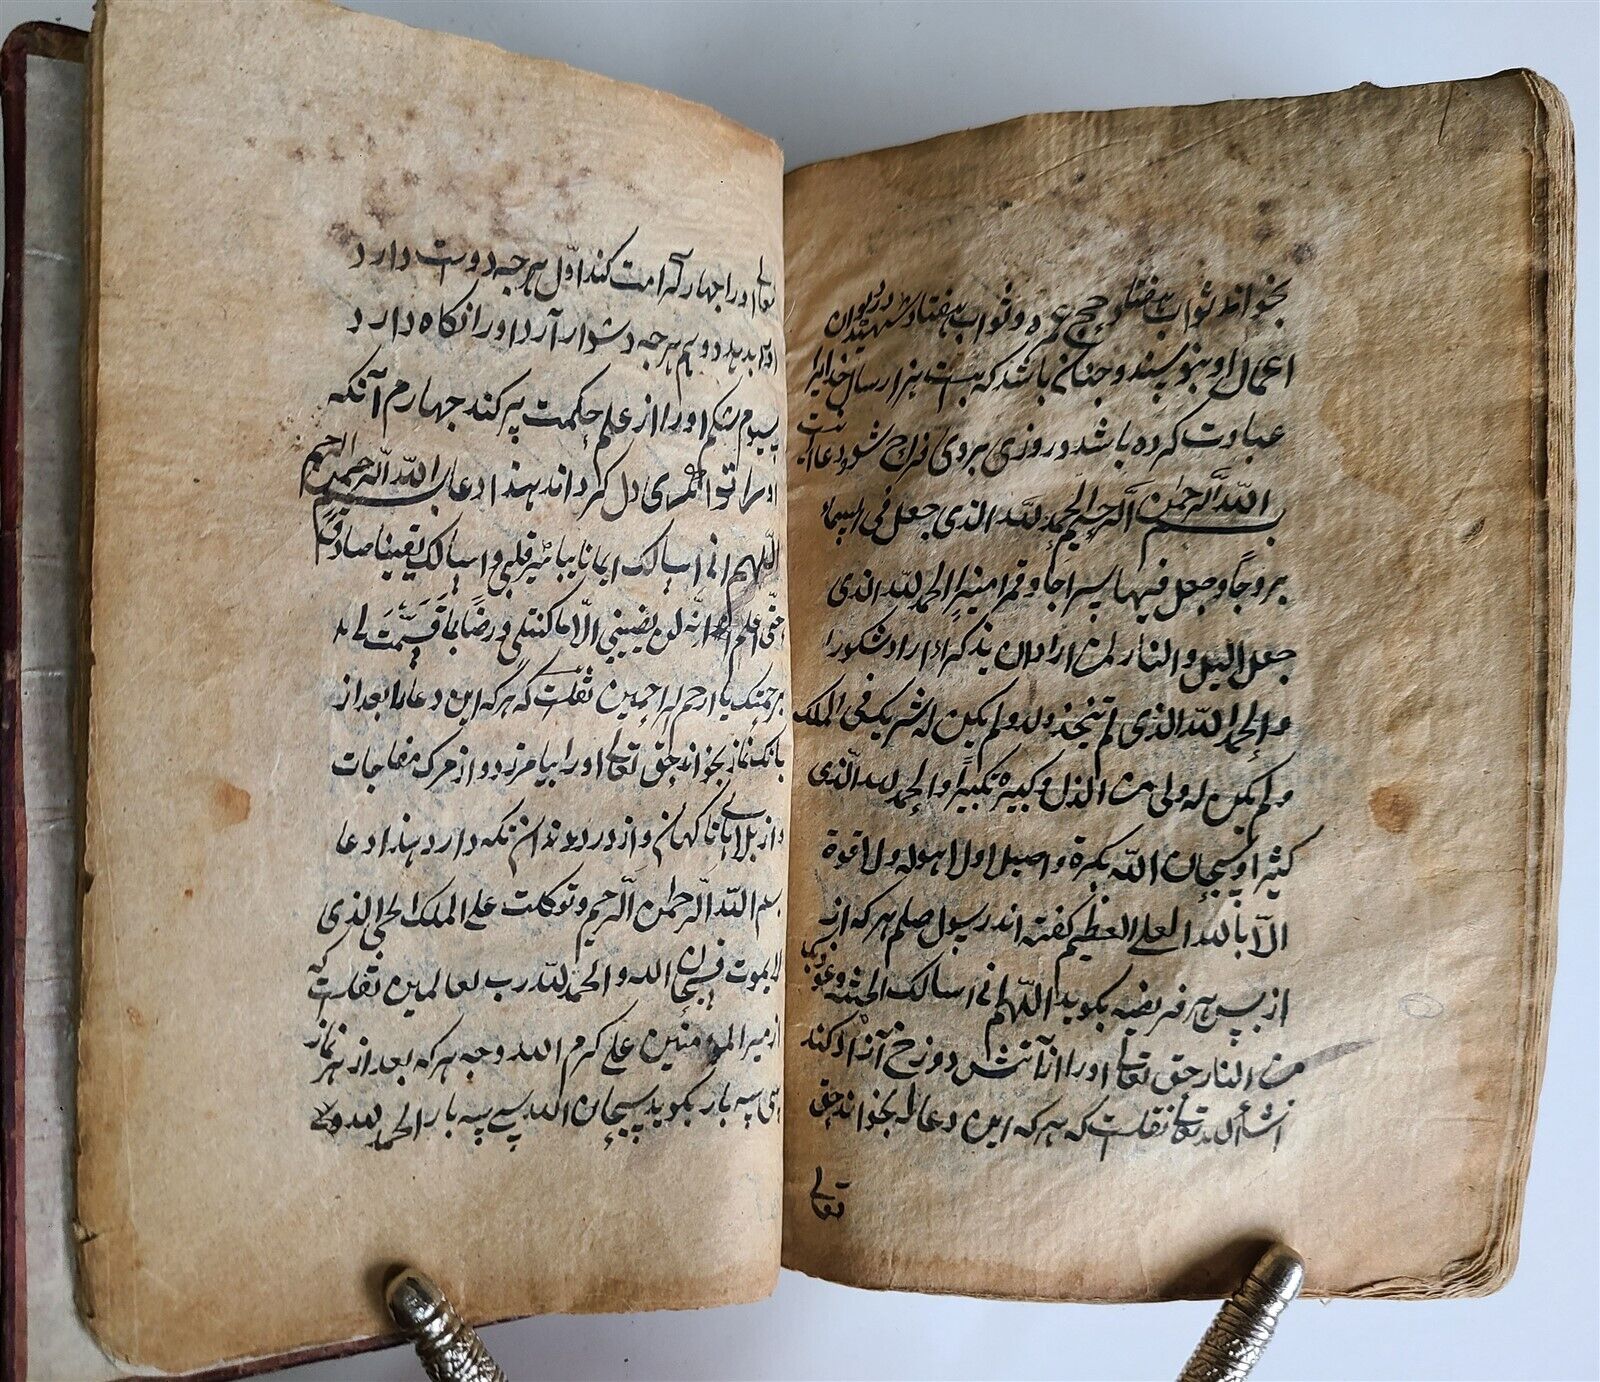 بخواند ثواب هفتاد حج عمره و ثواب هفتاد شهید در دیوان
اعمال او بنویسند و چنان باشد که بیست هزار سال خدایرا
عبادت کرده باشد و روزی بروی فراخ شود دعا اینست
بسم الله الرحمن الرحیم الحمد لله الذی جعل فی السماء
بروجاً و جعل فیها سراجا و قمرا منیرا الحمد لله الذی
جعل الیل والنهار لمن اراد ان یذکر او اراد شکورا
والحمد لله الذی لم یتخذ ولدا ولم یکن له شریک فی الملک
ولم یکن له ولی من الذل وکبره تکبیرا والحمد لله الذی
کثیرا و سبحان الله بکرة واصیلا ولا حول ولا قوة
الا بالله العلی العظیم گفته اند رسول صلعم هر که از
از پس هر فریضه بگوید اللهم انی اسالک الجنه
من النار حق تعالی او را از آتش دوزخ آزاد کند
انشاء الله تعالی نقلست که هر که این دعا را بخواند حق
تعالی
تعالی او را چهار کرامت کند اول هر چه دوست دارد
او را بدهد دویم هر چه دشوار آرد او را نکاه دارد
سیوم شکم او را از علم حکمت پر کند چهارم آنکه
او را توانکری دل کرداند هذا دعا بسم الله الرحمن الرحیم
اللهم انی اسالک ایمانا یباشر قلبی و اسالک یقینا صادقا
حتی اعلم انه لن یصیبنی الا ما کتبت لی و رضا بما قسمت لی
برحمتک یا ارحم الراحمین نقلست که هر که این دعا را بعد از
بانک نماز بخواند حق تعالی او را بیامرزد و از مرک مفاجات
و از بلاهائی ناکهان و از درد دندان نکه دارد هذا دعا
بسم الله الرحمن الرحیم و توکلت علی الملک الحی الذی
لا یموت فسبحان الله والحمد لله رب العالمین نقلست که
از میر المومنین علی کرم الله وجه هر که بعد از هر نماز
سی سه بار بگوید سبحان الله سی سه بار الحمد لله و